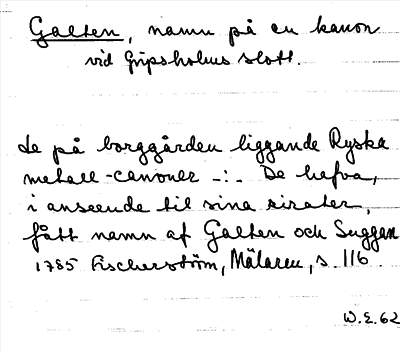 Galten, namn på en kanon
vid Gripsholms slott.
de på borggården liggande Ryska
metall-canoner -:- De hafva,
i anseende til sina zirater,
fått namn af Galten och Suggan
1785 Fischerström, Mälaren, s. 116.
W.E. 62